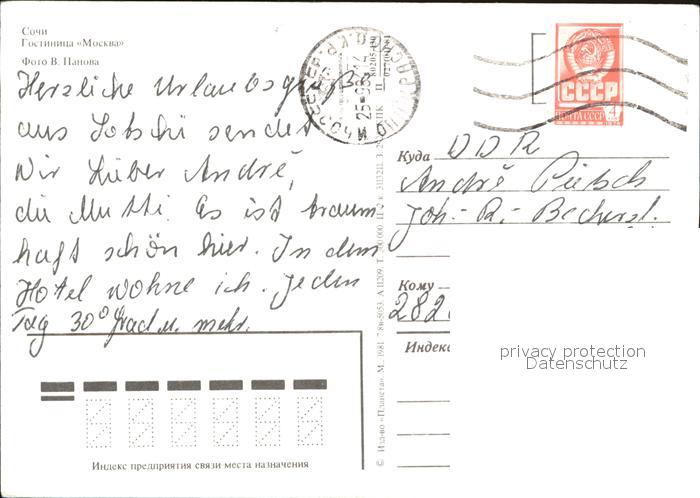 Сочи
Гостиница «Москва»
Фото В. Панова
Herzliche Urlaubsgrüße
aus Sotschi sendet
Dir Lieber André,
die Mutti. Es ist traum-
haft schön hier. In dem
Hotel wohne ich. Jeden
Tag 30° Grad u. mehr.
СССР
ПОЧТА СССР
4
Куда DDR
André
Joh.-R.-Becherst.
Кому
282
Индекс
privacy protection
Datenschutz
Индекс предприятия связи места назначения
© Изд-во «Планета». М., 1981